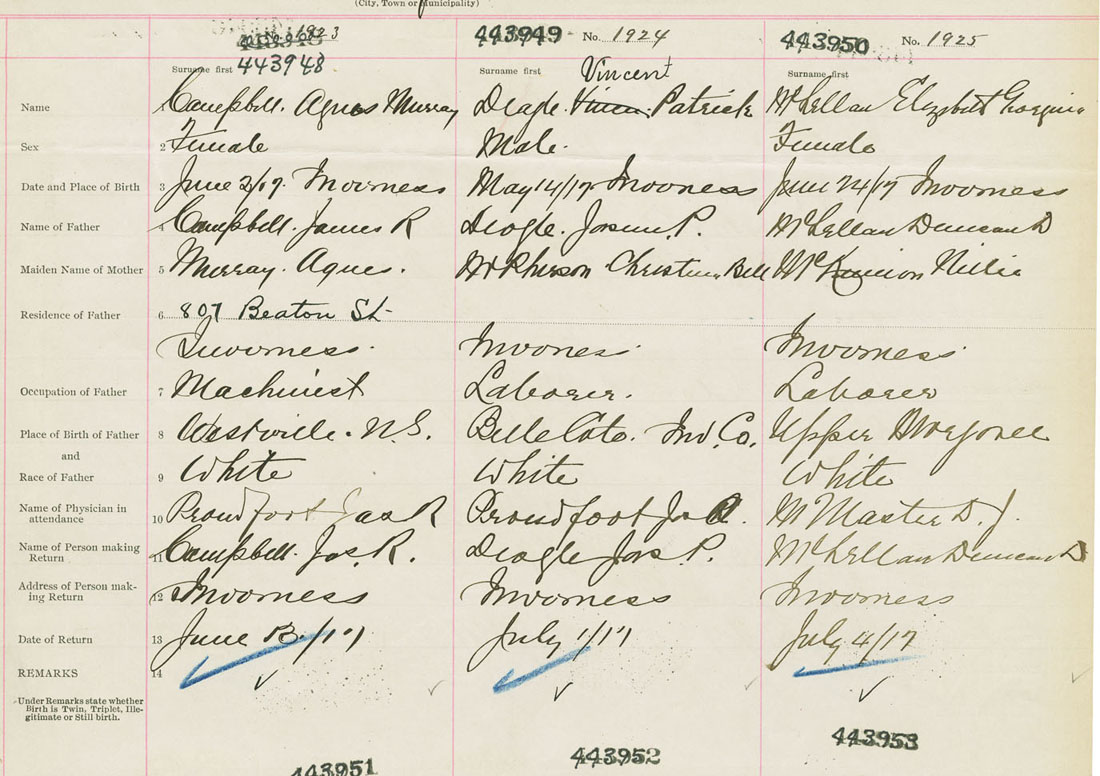 (City, Town or Municipality)
1923 443949 No. 1924 443950 No. 1925
Surname first 443948 Surname first Vincent Surname first
Name Campbell. Agnes Murray Deagle. Patrick McLellan Elizabeth Georgina
Sex 2 Female Male. Female
Date and Place of Birth 3 June 2/17. Inverness May 14/17 Inverness June 24/17 Inverness
Name of Father 4 Campbell. James R Deagle. P. McLellan Duncan D
Maiden Name of Mother 5 Murray. Agnes. McPherson Christina Bell McKinnon
Residence of Father 6 807 Beaton St
Inverness. Inverness Inverness
Occupation of Father 7 Machinist Laborer. Laborer
Place of Birth of Father 8 Westville. N.S. Belle Cote. Inv. Co. Upper Margaree
and
Race of Father 9 White White White
Name of Physician in
attendance 10 Proudfoot Jas R Proudfoot Jas R. McMaster D. J.
Name of Person making
Return 11 Campbell. Jas. R. Deagle Jos P. McLellan Duncan D
Address of Person mak-
ing Return 12 Inverness Inverness Inverness
Date of Return 13 June 13/17 July 1/17 July 4/17
REMARKS 14
Under Remarks state whether
Birth is Twin, Triplet, Ille-
gitimate or Still birth.
443951 443952 443953